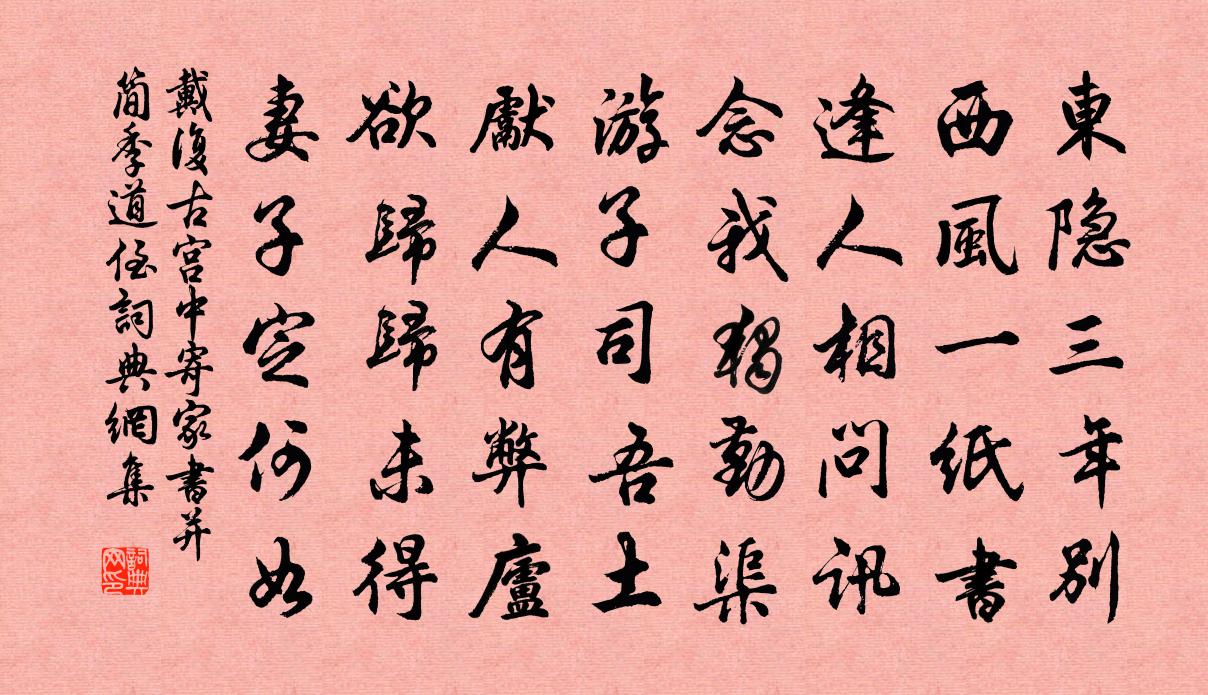 東隐三年别
西風一紙書
逢人相問訊
念我獨勤渠
游子司吾土
獻人有弊廬
欲歸歸未得
妻子定何如
戴復古宮中寄家書并
簡季道侄詞典網集
詞典网印